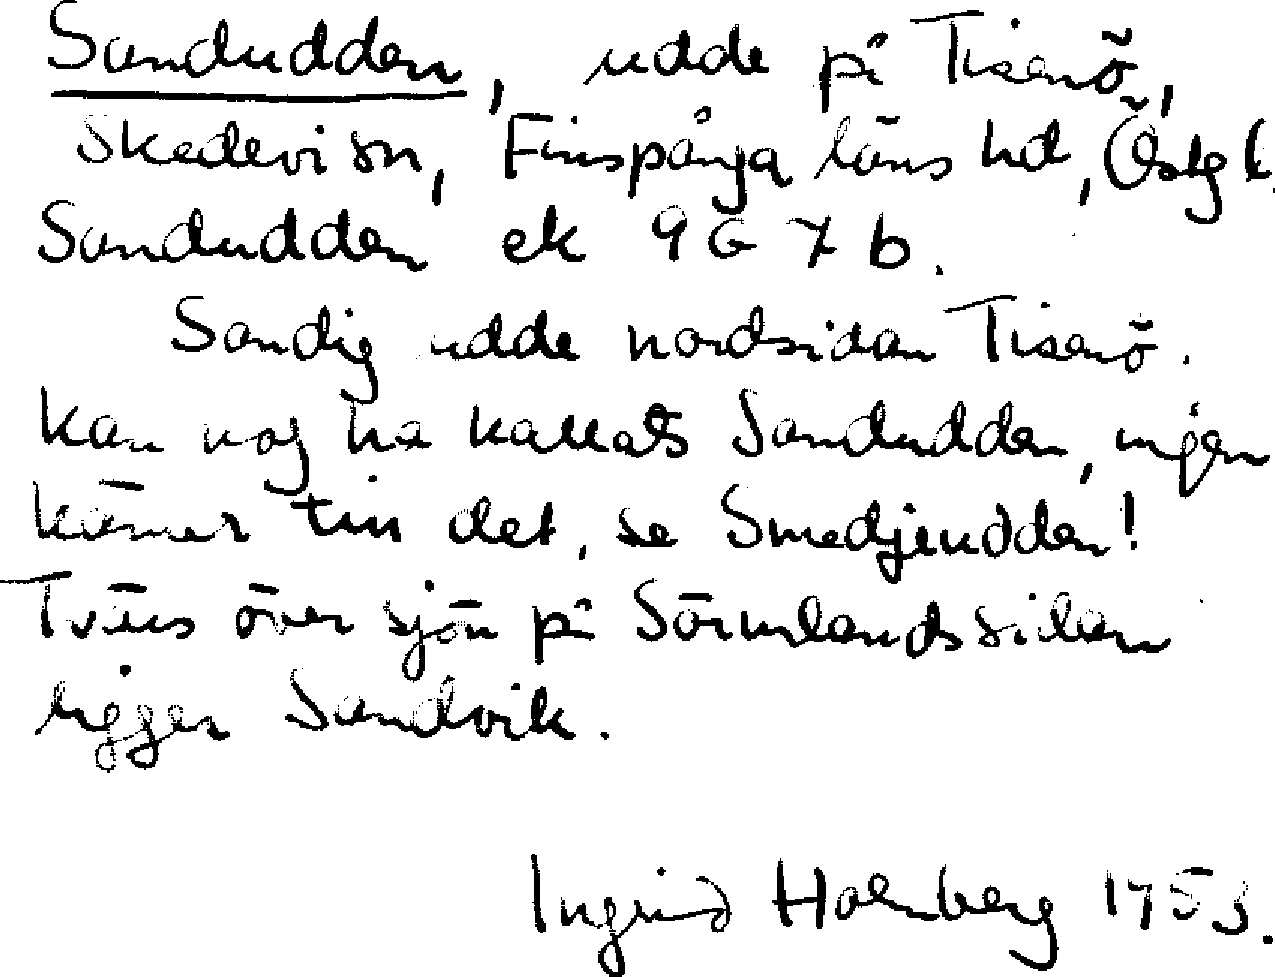 Sandudden, udde på Tisenö,
Skedevi sn, Finspånga läns hd, Östg l.
Sandudden ek 9 G 7 b.
Sandig udde nordsidan Tisenö.
Kan nog ha kallats Sandudden, ingen
känner till det, se Smedjeudden!
Tvärs över sjön på Sörmlandssidan
ligger Sandvik.
Ingrid Holmberg